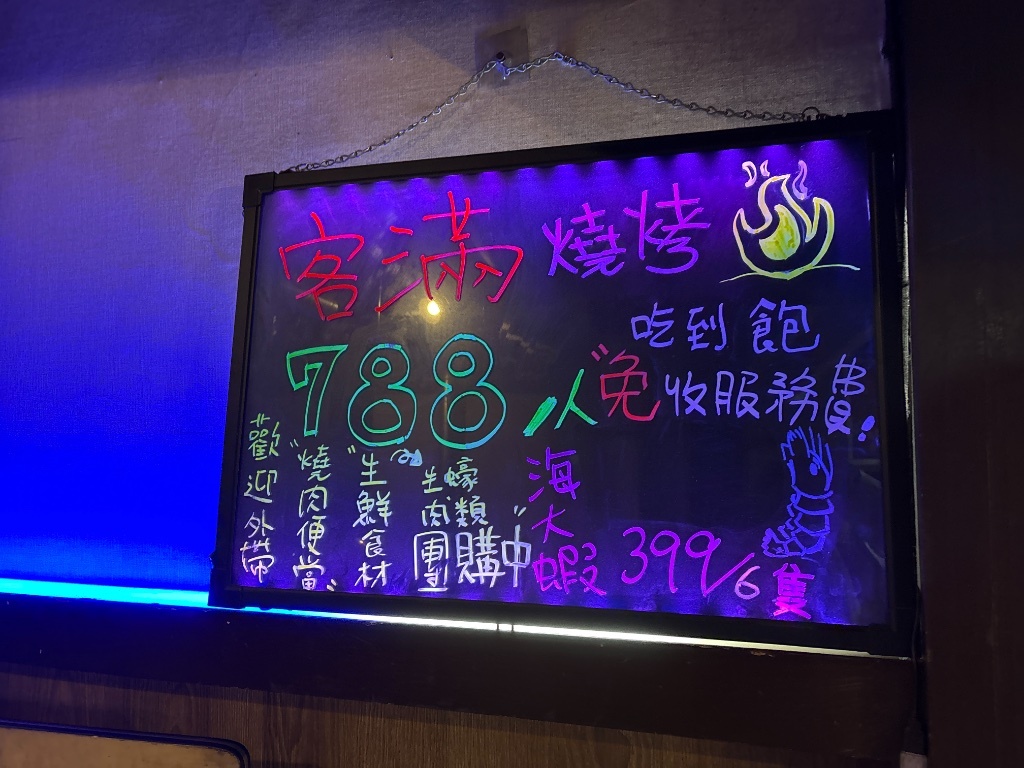 客滿 燒烤
吃到飽
788/人 "免收服務費!
歡迎外帶
"燒肉便當"
"生鮮食材
生蠔
肉類
團購中"
海大蝦 399/6隻